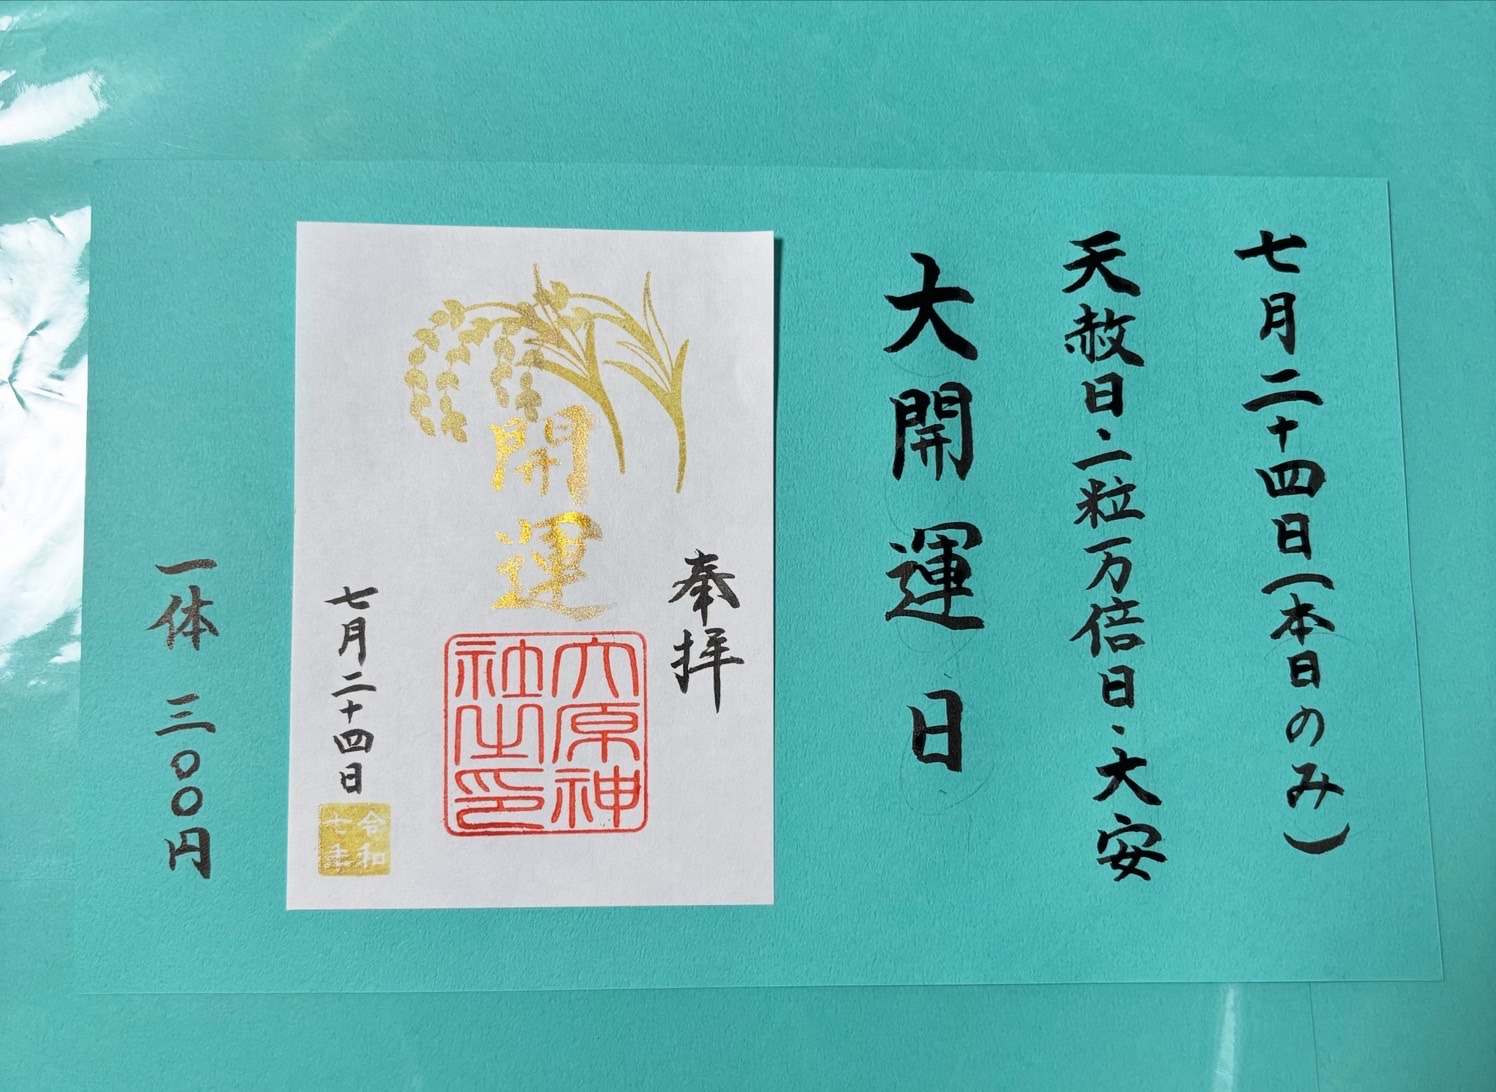 七月二十四日(本日のみ)
天赦日・一粒万倍日・大安
大開運日
奉拝
開運
六原神
社之印
七月二十四日
令和
七年
一体 三〇〇円